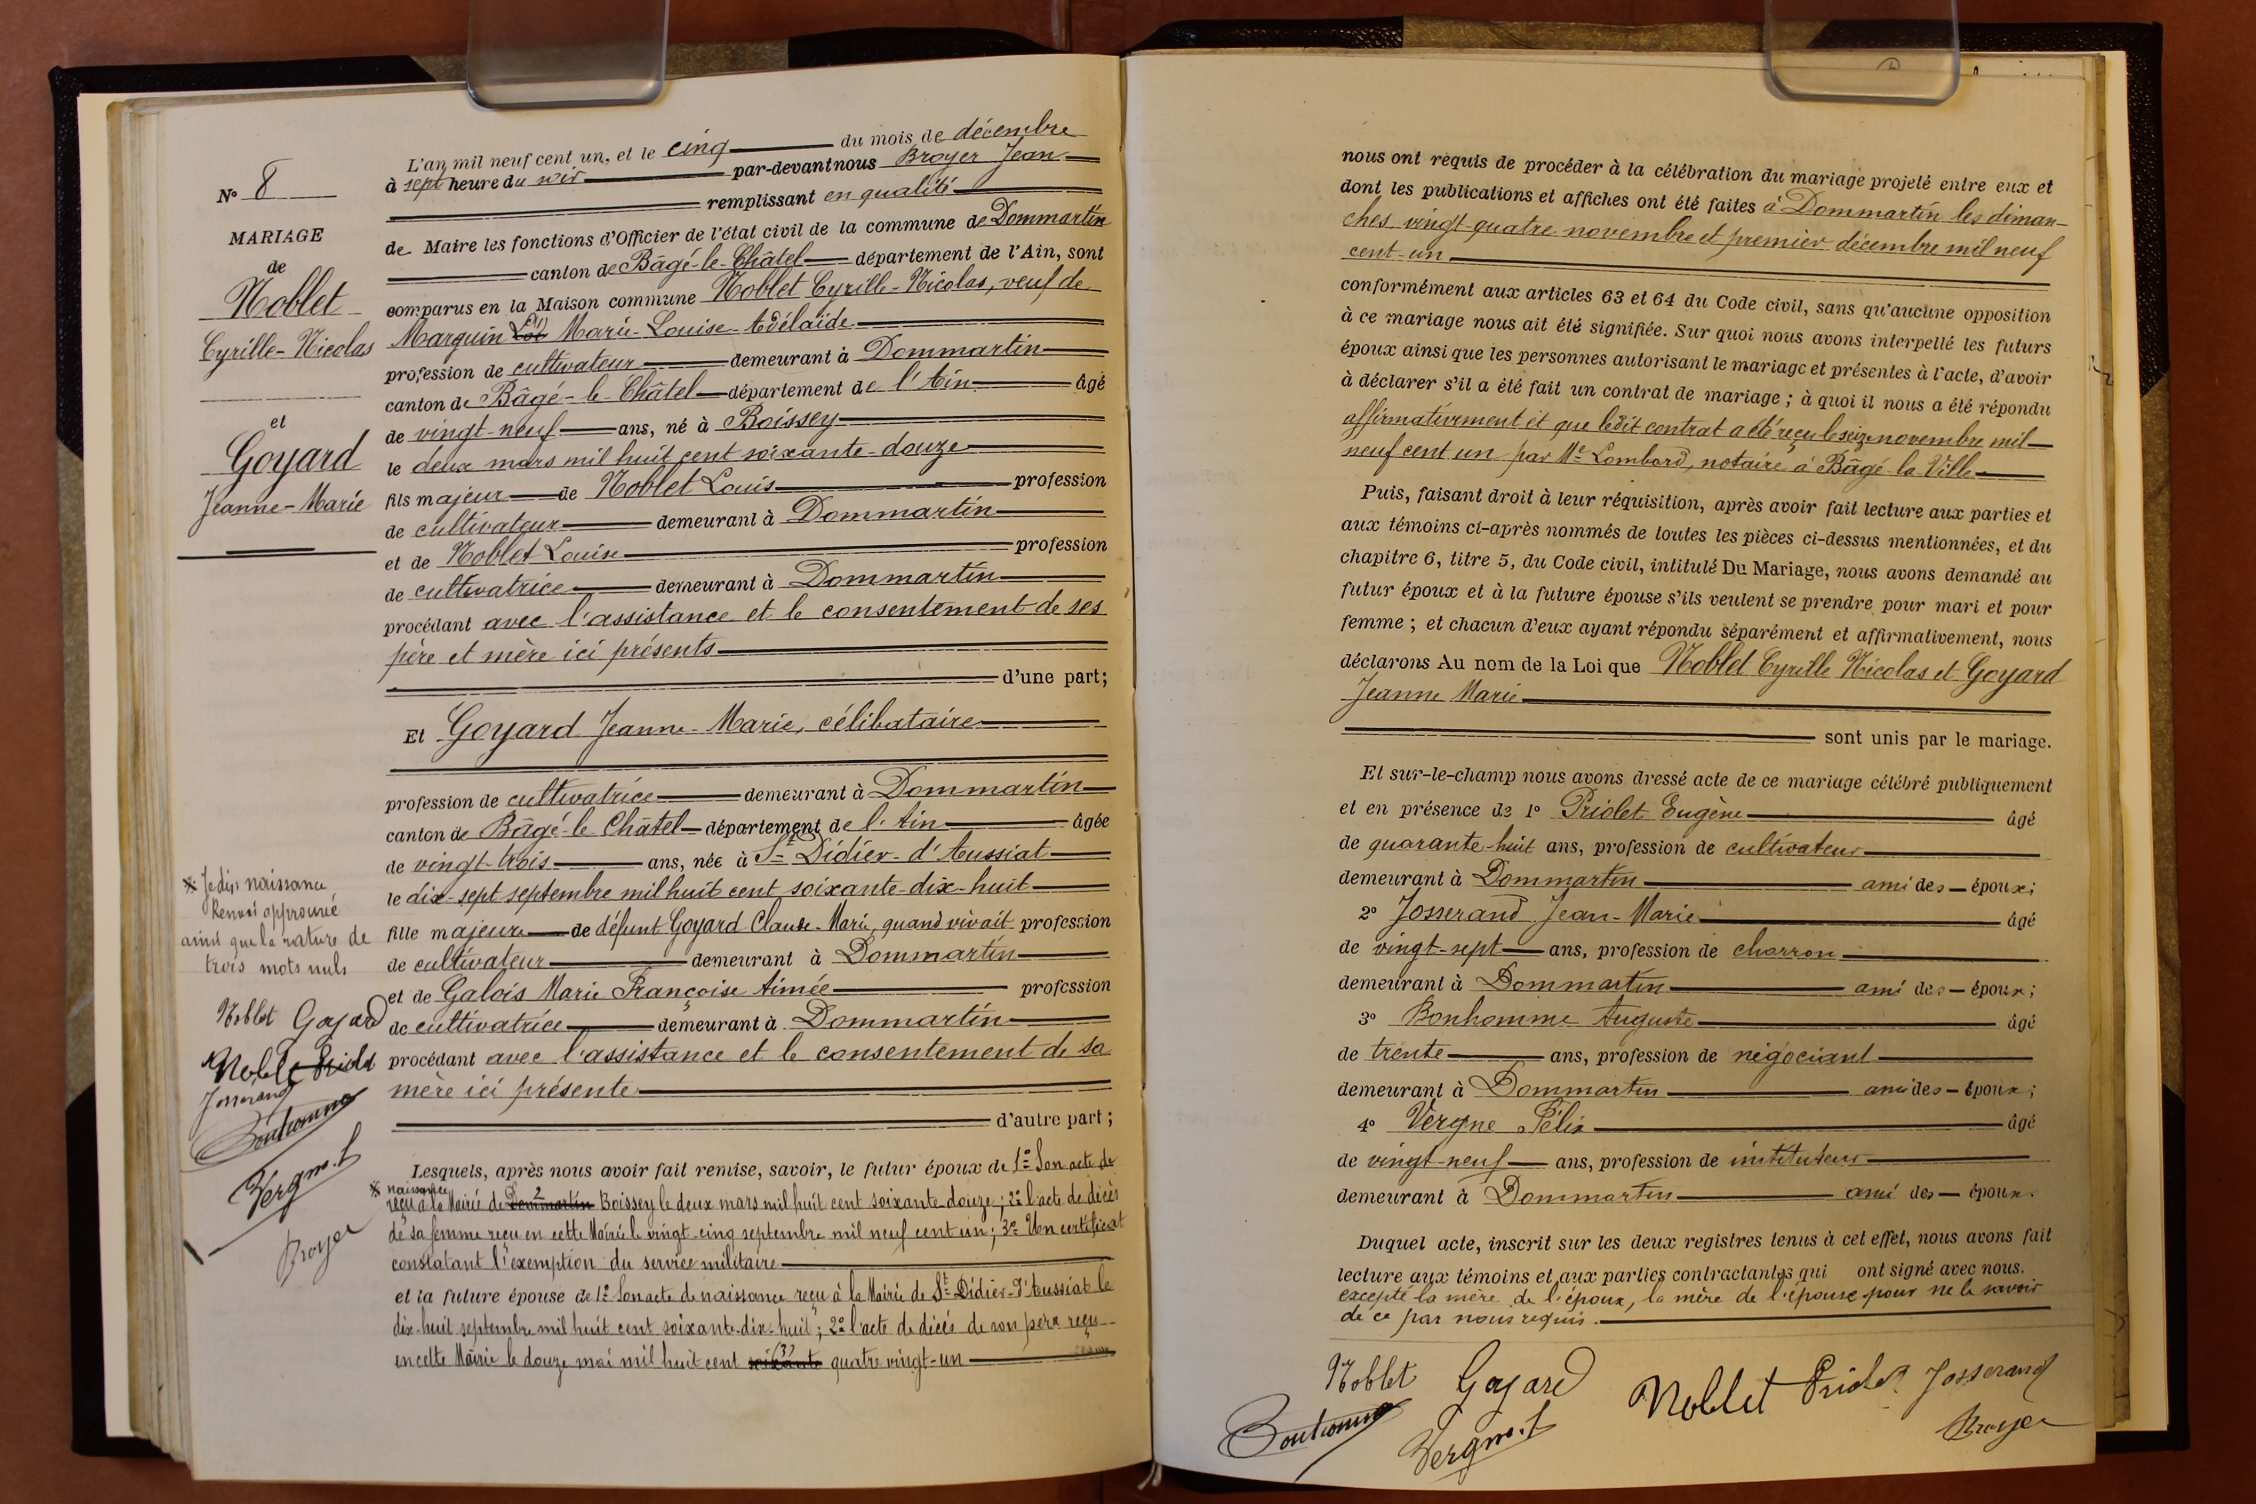 N° 8
MARIAGE
de
Noblet
Cyrille-Nicolas
et
Goyard
Jeanne-Marie
L'an mil neuf cent un, et le cinq du mois de décembre
à sept heure du soir par-devant nous Broyer Jean
remplissant en qualité
de Maire les fonctions d'Officier de l'état civil de la commune de Dommartin
canton de Bâgé-le-Châtel département de l'Ain, sont
comparus en la Maison commune Noblet Cyrille-Nicolas, veuf de
Marguin (1) Marie-Louise-Adélaïde
profession de cultivateur demeurant à Dommartin
canton de Bâgé-le-Châtel département de l'Ain âgé
de vingt-neuf ans, né à Boissey
le deux mars mil huit cent soixante-douze
fils majeur de Noblet Louis profession
de cultivateur demeurant à Dommartin
et de Noblet Louise profession
de cultivatrice demeurant à Dommartin
procédant avec l'assistance et le consentement de ses
père et mère ici présents
d'une part;
Et Goyard Jeanne-Marie, célibataire
profession de cultivatrice demeurant à Dommartin
canton de Bâgé-le-Châtel département de l'Ain âgée
de vingt-trois ans, née à St Didier-d'Aussiat
le dix-sept septembre mil huit cent soixante-dix-huit
fille majeure de défunt Goyard Claude-Marie, quand vivait profession
de cultivateur demeurant à Dommartin
et de Galois Marie Françoise Aimée profession
de cultivatrice demeurant à Dommartin
procédant avec l'assistance et le consentement de sa
mère ici présente
d'autre part;
Lesquels, après nous avoir fait remise, savoir, le futur époux de 1° Son acte de
* naissance
reçu à la Mairie de Dommartin 2 Boissey le deux mars mil huit cent soixante-douze; 2° l'acte de décès
de sa femme reçu en cette Mairie le vingt-cinq septembre mil neuf cent un; 3° Un certificat
constatant l'exemption du service militaire
et la future épouse de 1° Son acte de naissance reçu à la Mairie de St Didier-d'Aussiat le
dix-huit septembre mil huit cent soixante-dix-huit; 2° l'acte de décés de son père reçu
en cette Mairie le douze mai mil huit cent soixante (3) quatre vingt-un
* Je dis naissance
Renvoi approuvé
ainsi que la rature de
trois mots nuls
Noblet Goyard
Noblet Priolet
Josserand
Bonhomme
Vergne f
Broyer
nous ont requis de procéder à la célébration du mariage projeté entre eux et
dont les publications et affiches ont été faites à Dommartin les diman-
ches vingt-quatre novembre et premier décembre mil neuf
cent-un
conformément aux articles 63 et 64 du Code civil, sans qu'aucune opposition
à ce mariage nous ait été signifiée. Sur quoi nous avons interpellé les futurs
époux ainsi que les personnes autorisant le mariage et présentes à l'acte, d'avoir
à déclarer s'il a été fait un contrat de mariage; à quoi il nous a été répondu
affirmativement et que ledit contrat a été reçu le seize novembre mil
neuf cent un par Me Lombard, notaire à Bâgé la Ville
Puis, faisant droit à leur réquisition, après avoir fait lecture aux parties et
aux témoins ci-après nommés de toutes les pièces ci-dessus mentionnées, et du
chapitre 6, titre 5, du Code civil, intitulé Du Mariage, nous avons demandé au
futur époux et à la future épouse s'ils veulent se prendre pour mari et pour
femme; et chacun d'eux ayant répondu séparément et affirmativement, nous
déclarons Au nom de la Loi que Noblet Cyrille Nicolas et Goyard
Jeanne Marie
sont unis par le mariage.
Et sur-le-champ nous avons dressé acte de ce mariage célébré publiquement
et en présence de 1° Priolet Eugène âgé
de quarante-huit ans, profession de cultivateur
demeurant à Dommartin ami des époux;
2° Josserand Jean-Marie âgé
de vingt-sept ans, profession de charron
demeurant à Dommartin ami des époux;
3° Bonhomme Auguste âgé
de trente ans, profession de négociant
demeurant à Dommartin ami des époux;
4° Vergne Félix âgé
de vingt-neuf ans, profession de instituteur
demeurant à Dommartin ami des époux.
Duquel acte, inscrit sur les deux registres tenus à cet effet, nous avons fait
lecture aux témoins et aux parties contractantes qui ont signé avec nous.
excepté la mère de l'époux, la mère de l'épouse pour ne le savoir
de ce par nous requis.
Noblet Goyard Noblet Priolet Josserand
Bonhomme Vergne f Broyer